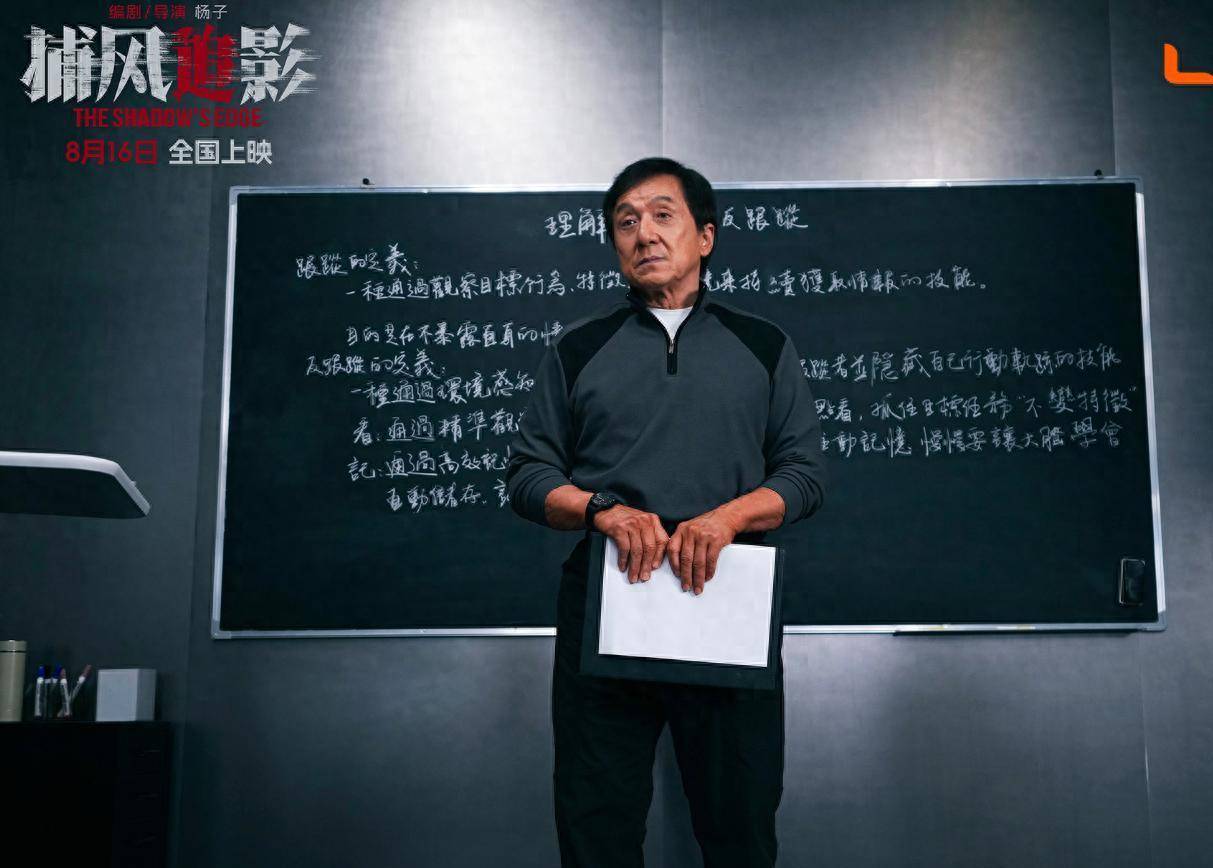 编剧/导演 杨子
捕风追影
THE SHADOW'S EDGE
8月16日 全国上映
理解 反跟蹤
跟蹤的定義：
一種通過觀察目標行為、特徵 來持續獲取情報的技能。
目的是在不暴露自身的情
反跟蹤的定義：
一種通過環境感知 跟蹤者並隱藏自己行動軌跡的技能
看：通過精準觀 點看，抓住目標任務“不變特徵”
記：通過高效記 主動記憶 慢慢要讓大腦學會
自動儲存、